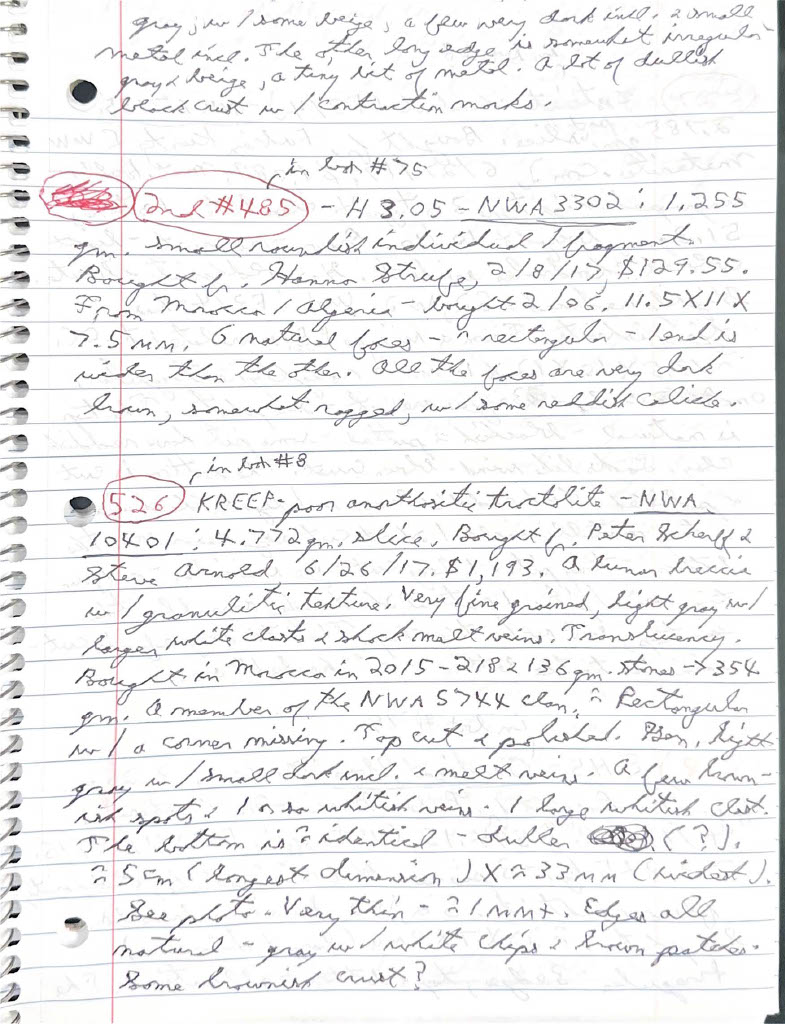 gray, w/ some beige, a few very dark incl. & small
metal incl. The other long edge is somewhat irregular
gray & beige, a tiny bit of metal. A lot of dullish
black crust w/ contraction marks.
in box #75
2nd #485 - H 3.05 - NWA 3302: 1.255
gm. small roundish individual / fragment.
Bought fr. Hanno Strufe, 2/8/17, $129.55.
From Morocco / Algeria - bought 2/06. 11.5 X 11 X
7.5 MM. 6 natural faces - ≈ rectangular - 1 end is
wider than the other. All the faces are very dark
brown, somewhat ragged, w/ some reddish caliche.
in box #8
526 KREEP-poor anorthositic troctolite - NWA
10401: 4.772 gm. slice. Bought fr. Peter Scherff &
Steve Arnold 6/26/17. $1,193. A lunar breccia
w/ granulitic texture. Very fine grained, light gray w/
larger white clasts & shock melt veins. Translucency.
Bought in Morocco in 2015 - 218 & 136 gm. stones → 354
gm. A member of the NWA 5744 clan. ≈ Rectangular
w/ a corner missing. Top cut & polished. light
gray w/ small dark incl. & melt veins. A few brown-
ish spots & 1 or so whitish veins. 1 large whitish clast.
The bottom is ≈ identical - duller (?).
≈ 5 cm (longest dimension) X ≈ 33 MM (widest).
See photo. Very thin - ≈ 1 MM+. Edges all
natural - gray w/ white chips & brown patches.
Some brownish crust?